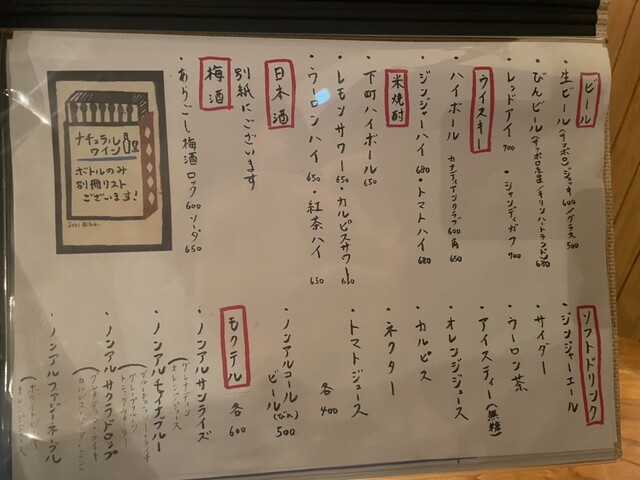 ビール
・生ビール(サッポロ) ジョッキ600/グラス500
・びんビール(サッポロ赤星/キリンハートランド)680
・レッドアイ 700 ・シャンディガフ 700
ウイスキー
・ハイボール カナディアンクラブ600 角650
・ジンジャーハイ 680 ・トマトハイ 680
米焼酎
・下町ハイボール 650
・レモンサワー 650 ・カルピスサワー 650
・ウーロンハイ 650 ・紅茶ハイ 650
日本酒
別紙にございます
梅酒
・ありごし梅酒 ロック600 ソーダ650
ナチュラル
ワイン
ボトルのみ
別冊リスト
ございます!
ソフトドリンク
・ジンジャーエール
・サイダー
・ウーロン茶
・アイスティー(無糖)
・オレンジジュース
・カルピス
・ネクター
・トマトジュース
各400
・ノンアルコールビール(びん) 500
モクテル 各600
・ノンアルサンライズ
(グレナデン
オレンジジュース)
・ノンアルチャイナブルー
・ノンアルサクラドロップ
・ノンアルファジーネーブル